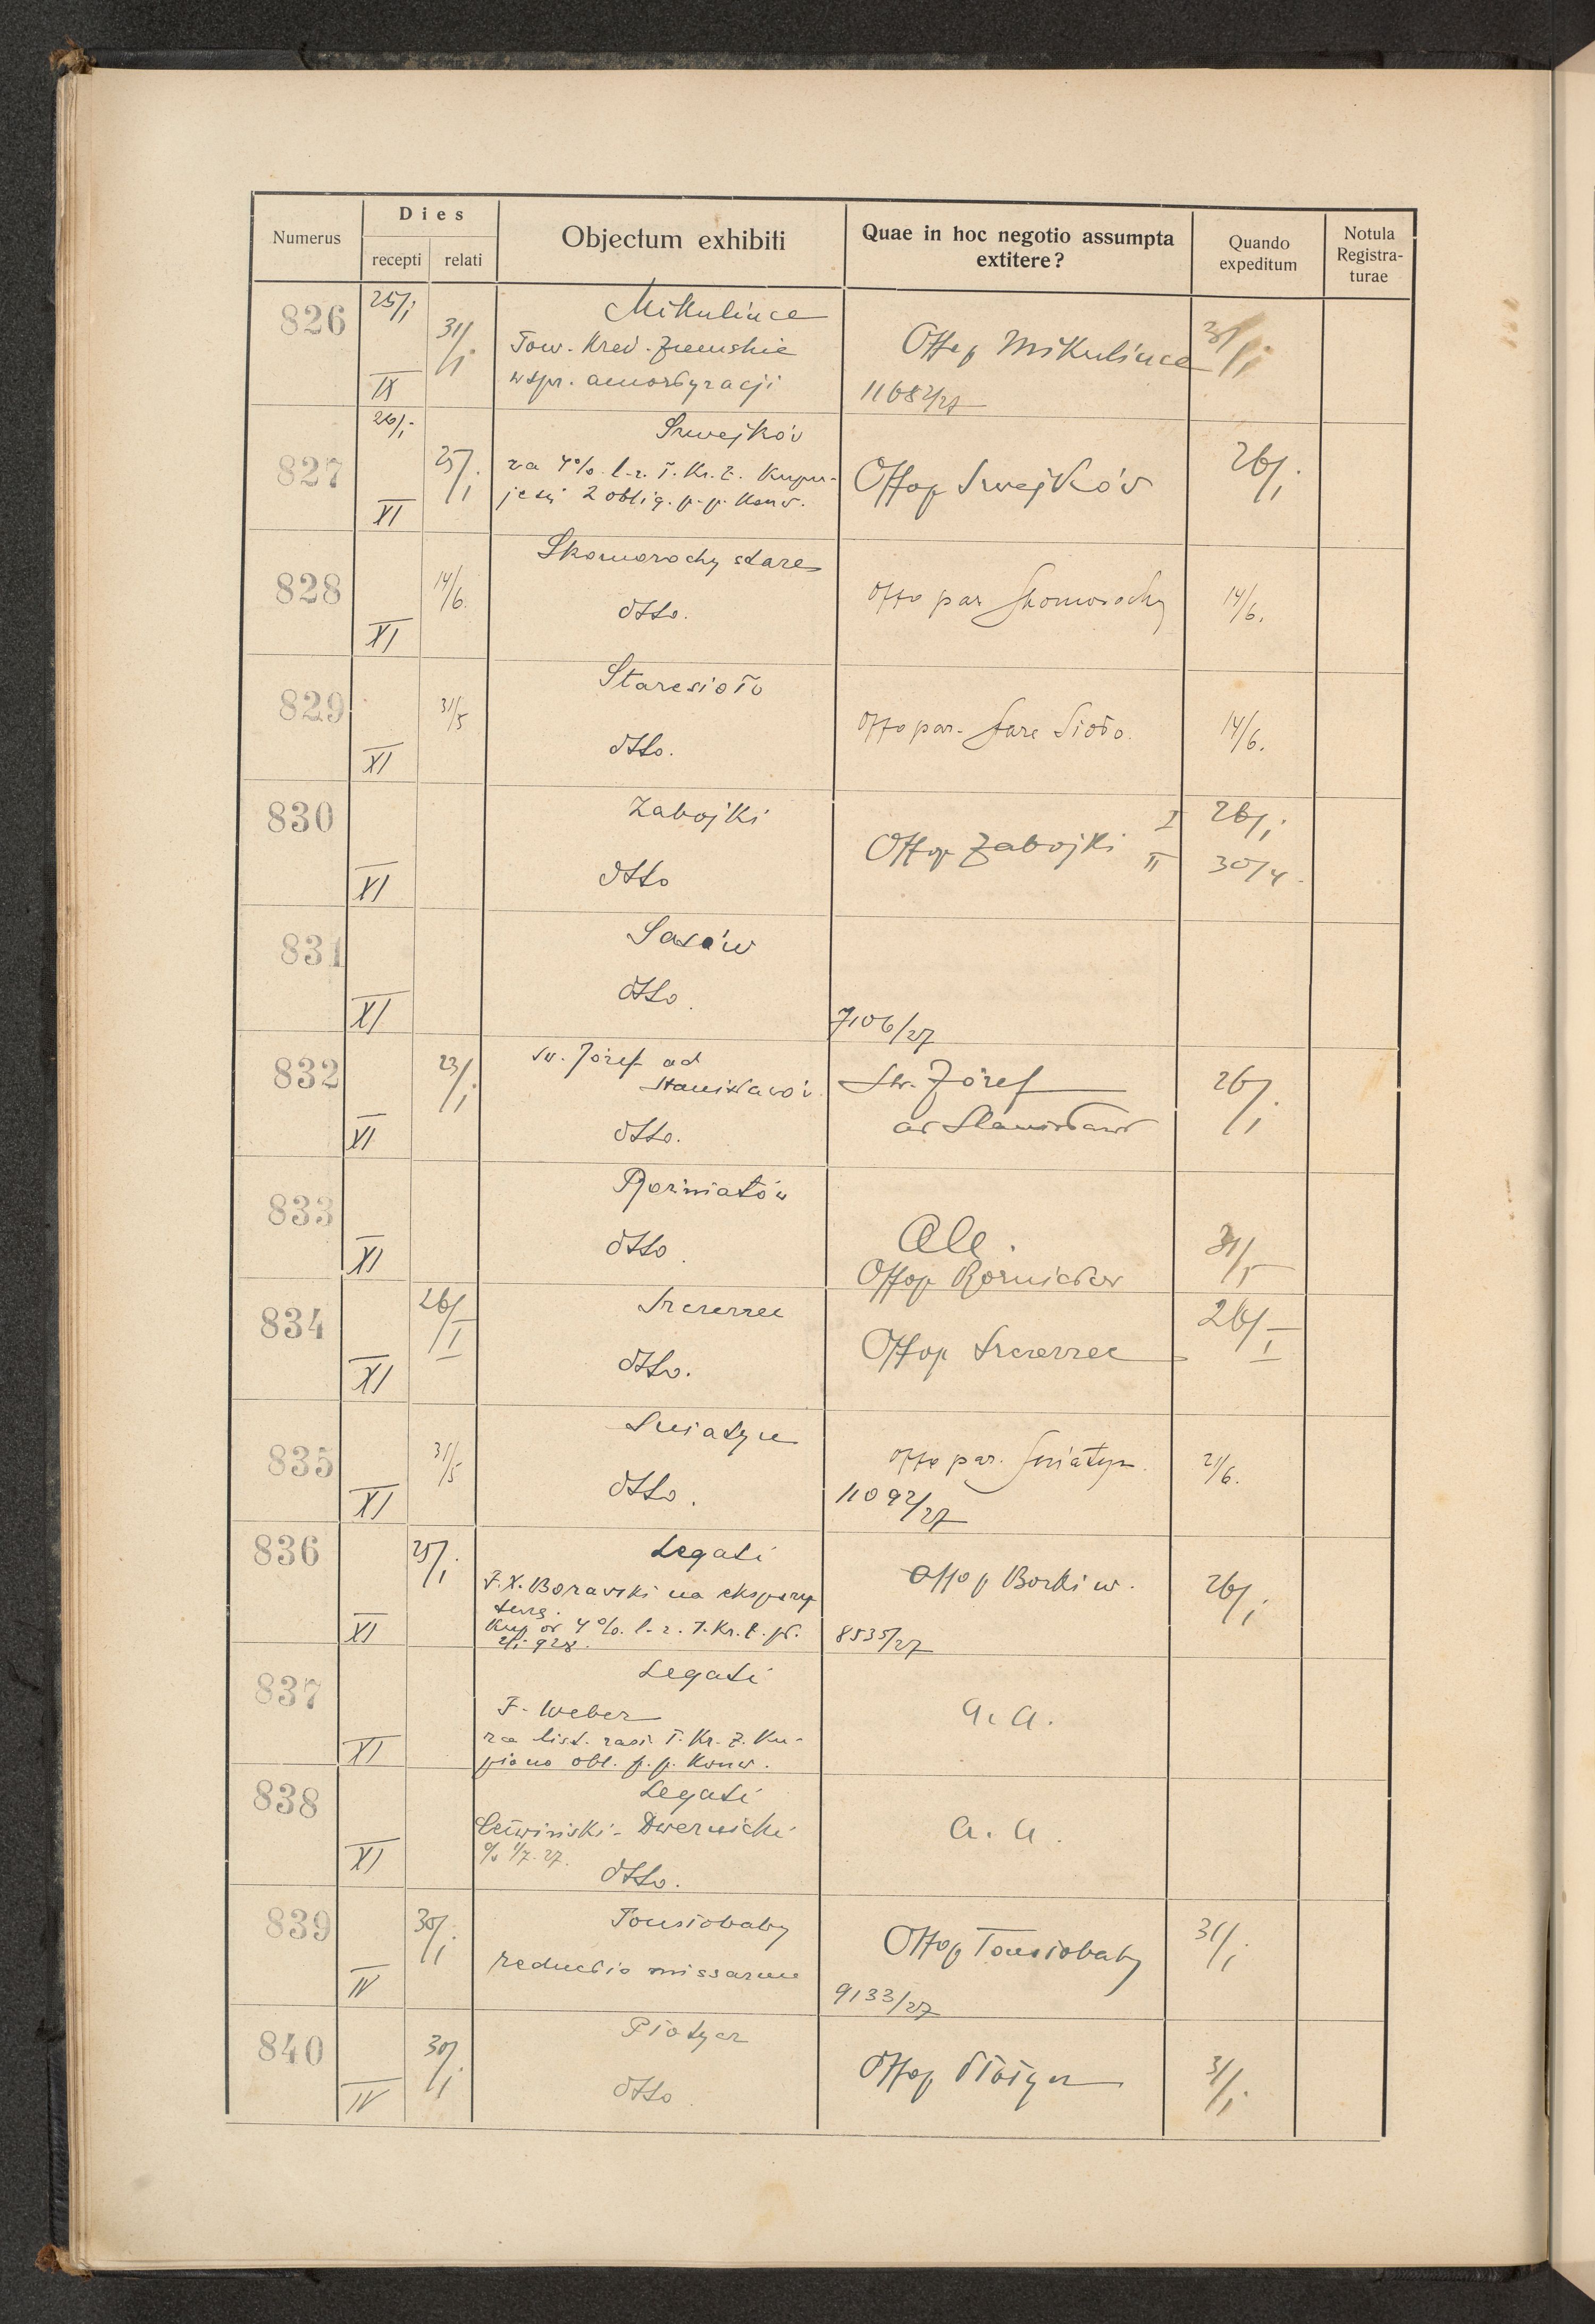 Numerus
Dies
recepti relati
Objectum exhibiti
Quae in hoc negotio assumpta
extitere?
Quando
expeditum
Notula
Registra-
turae
826 25/I 31/I Mikulińce
Tow. Kred. Ziemskie
w spr. amortyzacji
IX
Offop Mikulińce 31/I
11682/27
827 26/I 25/I Szwejków
za 4% l. z. T. Kr. Z. kupu-
je się 2 oblig. p. p. konw.
XI
Offop Szwejków 26/I
828 14/6. Skomorochy stare
dtto.
XI
Offo par Skomorochy 14/6.
829 31/5 Staresioło
dtto.
XI
Offo par. Stare Sioło. 14/6.
830 Zabojki
dtto
XI
Offop Zabojki I 26/I
II 30/4.
831 Sasów
dtto.
XI
7106/27
832 23/I św. Józef ad
Stanisławów
dtto.
XI
Św. Józef
ad Stanisławów
26/I
833 Rożniatów
dtto.
XI
Ale.
Offop Rożniatów 31/5
834 26/I Szczerzec
dtto.
XI
Offop Szczerzec 26/I
835 31/5 Śniatyn
dtto.
XI
Offo par. Śniatyn. 21/6.
11092/27
836 25/I Legati
F. X. Borawski na
kup od 4% l. z. T. Kr. Z. pł.
2/I 928.
XI
Offop Borki w. 26/I
8535/27
837 Legati
F. Weber
za list. zast. T. Kr. Z. ku-
piono obl. p. p. konw.
XI
a. a.
838 Legati
Dwernicki
% 1/7. 27.
dtto.
XI
a. a.
839 30/I Toustobaby
reductio missarum
IV
Offop Toustobaby 31/I
9133/27
840 30/I Płotycz
dtto.
IV
Offop Płotycz 31/I